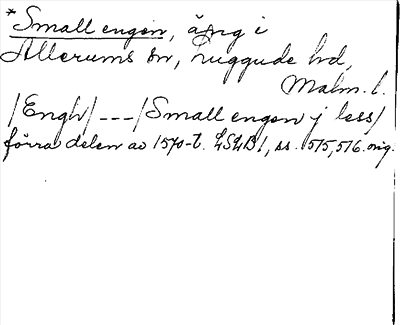 *Small engen, äng i
Allerums sn, Luggude hd,
Malm. l.
/Engh/ --- /Small engen j less/
förra delen av 1570-t. LSLB 1, ss. 515, 516. orig.